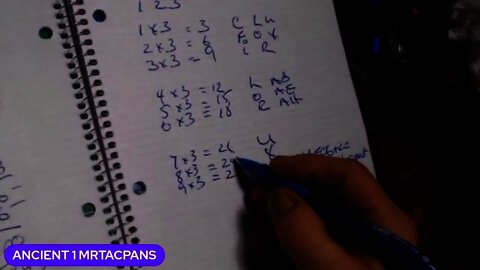 1 2 3
1x3 = 3 C L U
2x3 = 6 F O X
3x3 = 9 I R
4x3 = 12 L AB
5x3 = 15 O AE
6x3 = 18 R AH
7x3 = 21 U
8x3 = 2 X
9x3 = 2
ANCIENT 1 MRTACPANS